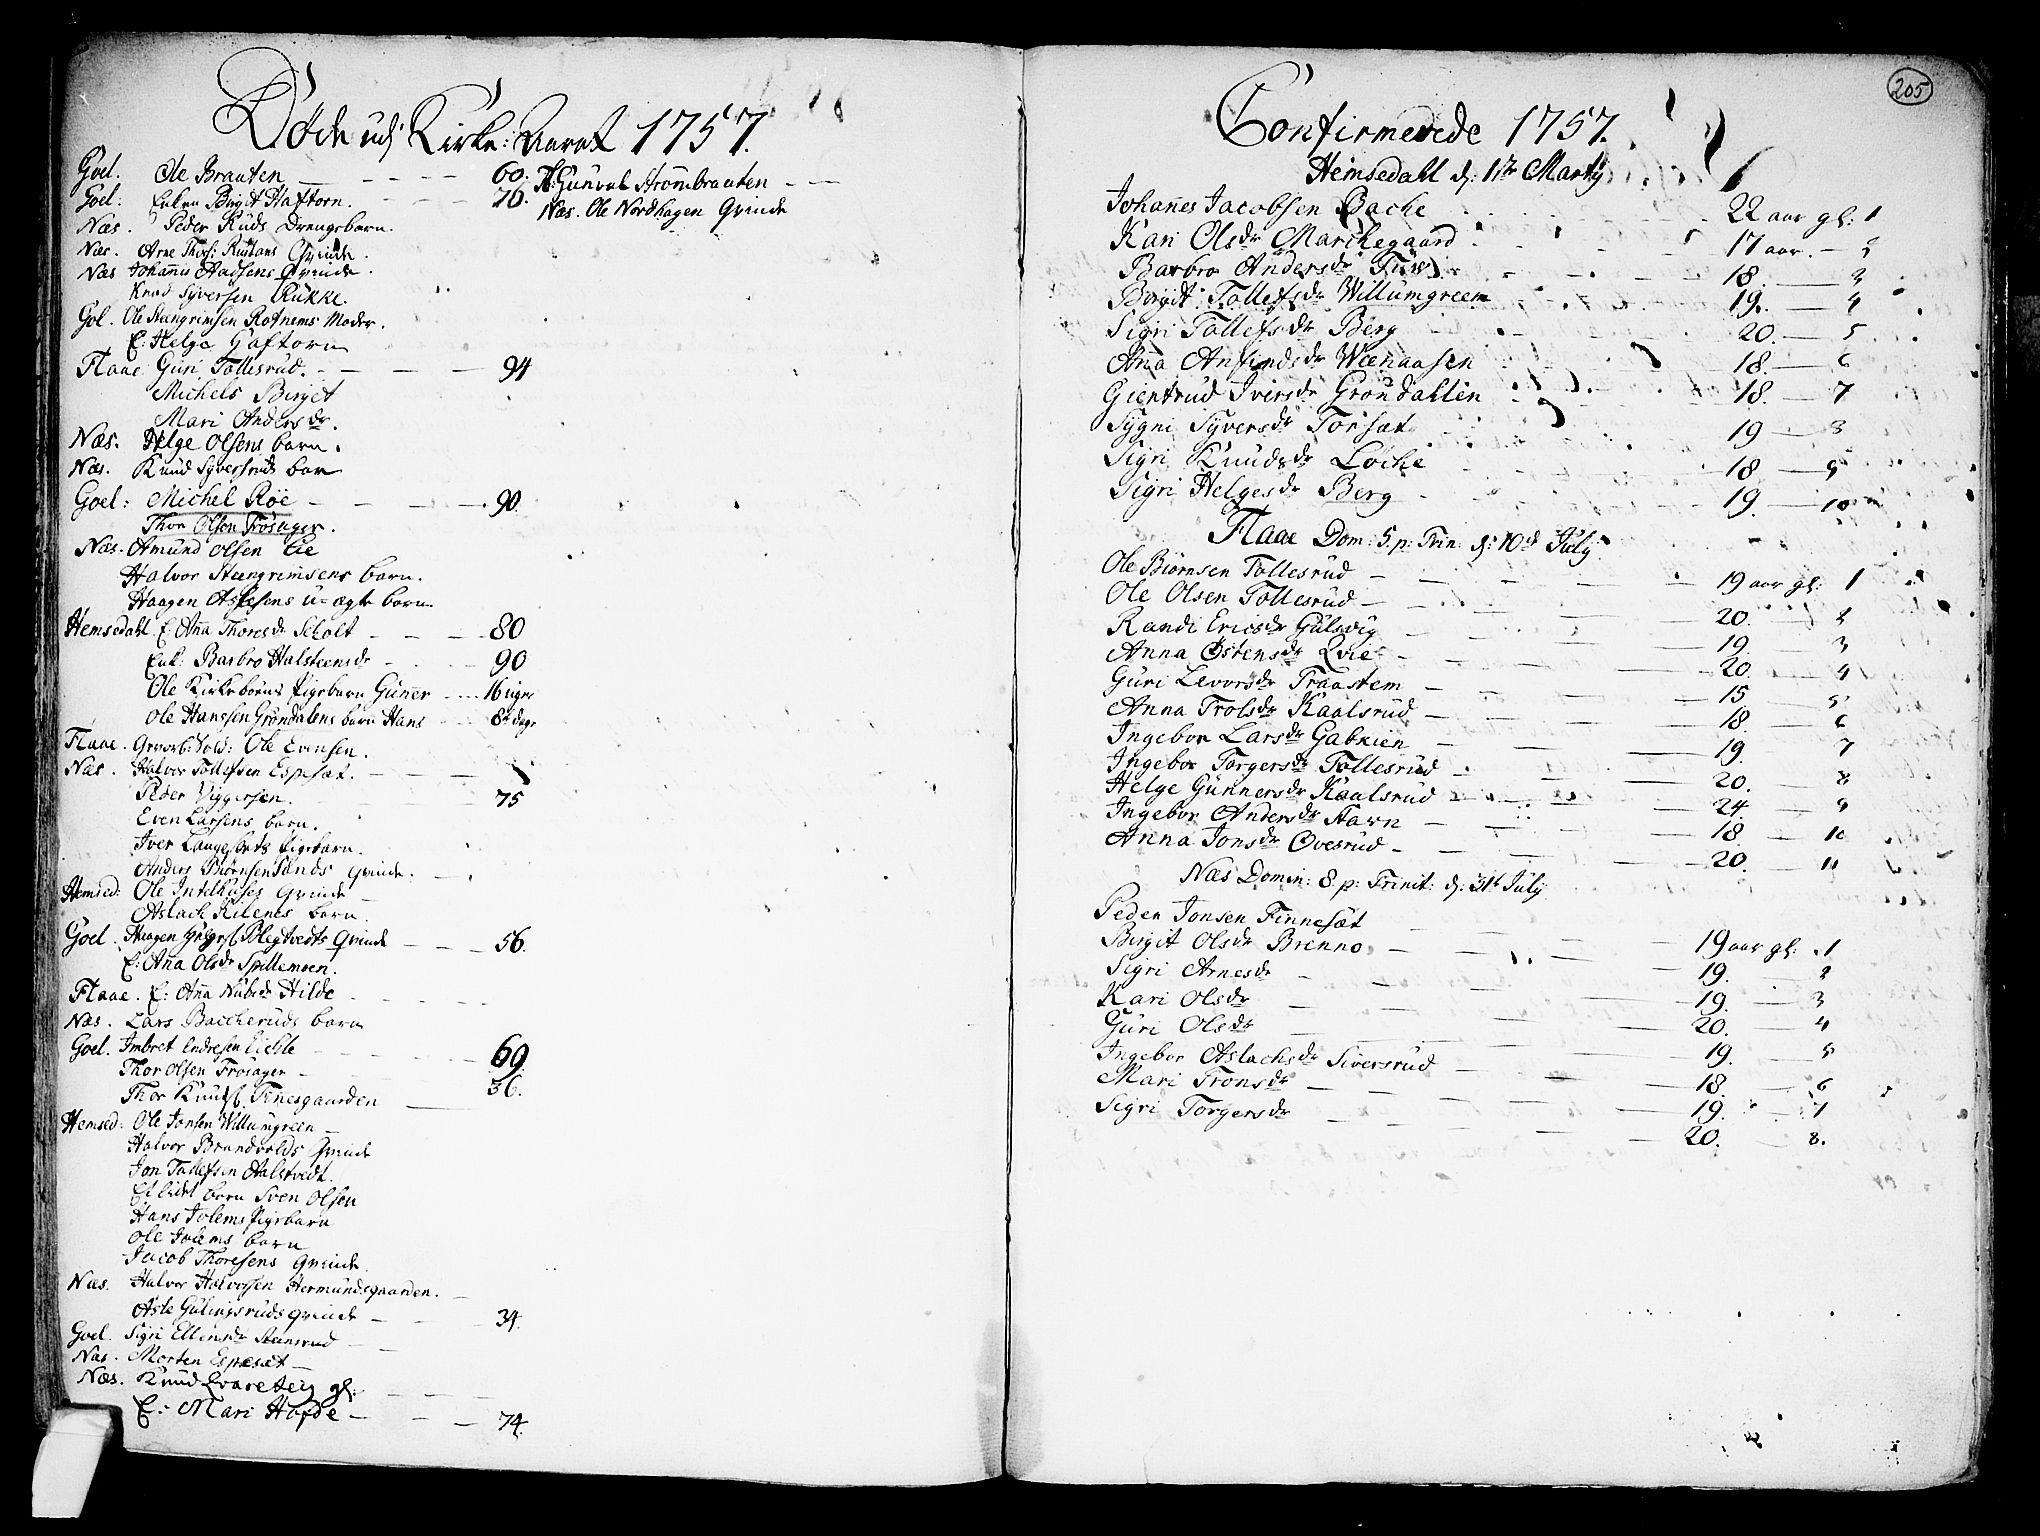 Døde udj Kirke: Aaret 1757.
Goel. Ole Braaten 60.
Goel: Enken Birgit Haftorn. 76.
Næs. Peder Ruds Drengebarn.
Næs. Arne Thors: Rustans Qvinde.
Næs Johannis Aadsens Qvinde.
Knud Syversen Rukke.
Gol. Ole Steengrimsen Rotnems Moder.
E: Helge Haftorn
Flaae Guri Tollesrud. 94
Michels Birgit
Mari Andersdr.
Næs. Helge Olsens barn.
Næs. Knud Syversruds bar
Goel: Michel Røe 90.
Thor Olsen Trøsager.
Næs. Amund Olsen Lie
Halvor Steengrimsens barn.
Haagen Aslesens u-ægte barn.
Hemsedahl. E: Anna Thoresdr Scholt 80
Enk: Barbro Halsteensdr 90
Ole Kirkeboens Pigebarn Guner 16 uger
Ole Hanssen Grøndalens barn Hans 8te dage
Flaae. Gevorb: Sold: Ole Evensen.
Næs. Halvor Tollefsen Espesæt.
Peder Viggersen. 75
Even Larsens barn.
Iver Langesæts Pigebarn.
Anders Biørnsen Sands qvinde.
Hemsed: Ole Intelhuses qvinde
Aslach Kilenes barn.
Goel. Haagen Bleqtvedts Qvinde 56.
E: Ana Olsdr Spillemoen.
Flaae. E: Anna Nubsdr Hilde
Næs. Lars Baccheruds barn
Goel. Imbret Endresen Eichle 69.
Thor Olsen Trøsager 36.
Thor Knuds. Finesgaarden
Hemsed: Ole Jonsen Willumgreen
Halvor Brandvolds Qvinde
Jon Tollefsen Aalstvedt.
Et lidet barn Sven Olsen
Hans Jolems Pigebarn
Ole Joiems barn
Jacob Thoresens Qvinde
Næs. Halvor Halvorsen Hermundsgaarden.
Asle Gulingsruds qvinde 34.
Goel. Sigri Ellensdr Steensrud
Næs. Morten Espesæt
Næs. Knud Evareteig gl:
E: Mari Hofde 74.
N: Gunvul Strømbraaten
Næs. Ole Nordhagen Qvinde
205
Confirmerede 1757.
Hemsedall d: 11te Martij
Johanes Jacobsen Bache 22 aar gl: 1
Kari Olsdr Marchegaard 17 aar. 2
Barbro Andersdr 18 3
Birgit Tollefsdr Willumgreem 19. 4
Sigri Tollefsdr Berg 20. 5
Anna Anfindsdr Wænaasen 18. 6
Giertrud Iversdr Grøndahlen 18. 7
Sygni Syversdr Torsæt 19 8
Sigri Knudsdr Løche 18 9
Sigri Helgesdr Berg 19. 10
Flaae Dom: 5. p: Trin: d: 10de July
Ole Biørnsen Tollesrud 19 aar gl: 1
Ole Olsen Tollesrud 20. 2
Randi Ericsdr Gulsvig 19. 3
Anna Østensdr Qvie 20. 4
Guri Levorsdr Traastem 15 5
Anna Trolsdr Kaalsrud 18. 6
Ingebor Larsdr Gabrien 19. 7
Ingebor Torgersdr Tollesrud 20. 8
Helge Gunnersdr Kaalsrud 24. 9
Ingebor Andersdr Starn 18. 10
Anna Jonsdr Ovesrud 20. 11
Næs Domin: 8. p: Trinit: d: 31te July
Peder Jonsen Finnesæt 19 aar gl: 1
Birgit Olsdr Brenno 19. 2
Sigri Arnesdr 19. 3
Kari Olsdr 20. 4
Guri Olsdr 19. 5
Ingebor Aslachsdr Siversrud 18. 6
Mari Tronsdr 19. 7
Sigri Torgersdr 20. 8.